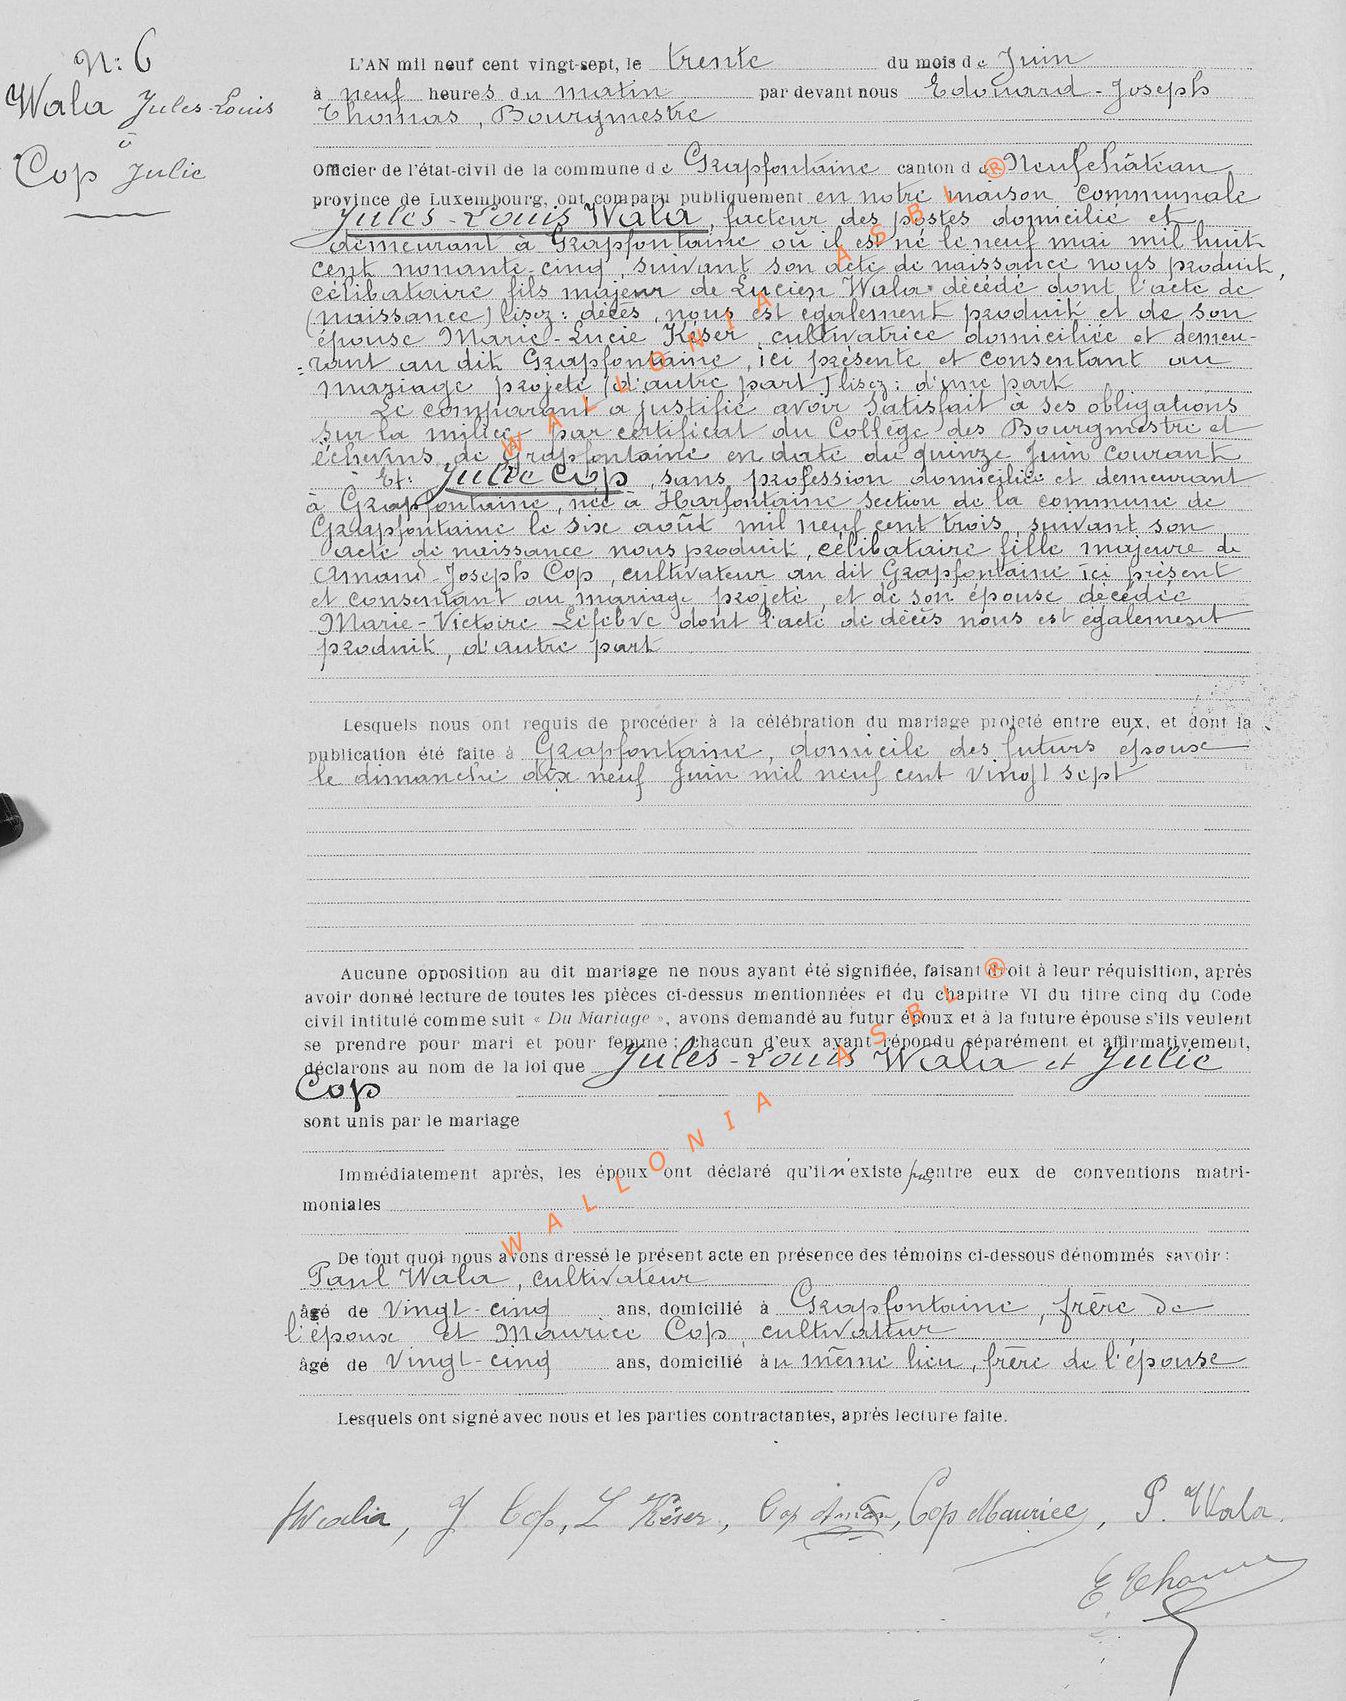 N: 6
Wala Jules-Louis
à
Cop Julie
L'AN mil neuf cent vingt-sept, le trente du mois de Juin
à neuf heures du matin par devant nous Edouard-Joseph
Thomas, Bourgmestre
Officier de l'état-civil de la commune de Grapfontaine canton de Neufchâteau
province de Luxembourg, ont comparu publiquement en notre maison communale
Jules-Louis Wala, facteur des postes domicilié et
demeurant à Grapfontaine où il est né le neuf mai mil huit
cent nonante-cinq, suivant son acte de naissance nous produit,
célibataire fils majeur de Lucien Wala décédé dont l'acte de
(naissance) lisez: décès, nous est également produit et de son
épouse Marie-Lucie Késer, cultivatrice domiciliée et demeu-
rant au dit Grapfontaine, ici présente et consentant au
mariage projeté (d'autre part) lisez: d'une part
Le comparant a justifié avoir satisfait à ses obligations
sur la milice par certificat du Collège des Bourgmestre et
échevins de Grapfontaine en date du quinze Juin courant
Et: Julie Cop, sans profession domiciliée et demeurant
à Grapfontaine, née à Harfontaine section de la commune de
Grapfontaine le six août mil neuf cent trois, suivant son
acte de naissance nous produit, célibataire fille majeure de
Amand-Joseph Cop, cultivateur au dit Grapfontaine ici présent
et consentant au mariage projeté, et de son épouse décédée
Marie-Victoire Lefebve dont l'acte de décès nous est également
produit, d'autre part
Lesquels nous ont requis de procéder à la célébration du mariage projeté entre eux, et dont la
publication été faite à Grapfontaine, domicile des futurs époux
le dimanche dix neuf Juin mil neuf cent vingt sept
Aucune opposition au dit mariage ne nous ayant été signifiée, faisant droit à leur réquisition, après
avoir donné lecture de toutes les pièces ci-dessus mentionnées et du chapitre VI du titre cinq du Code
civil intitulé comme suit « Du Mariage », avons demandé au futur époux et à la future épouse s'ils veulent
se prendre pour mari et pour femme; chacun d'eux ayant répondu séparément et affirmativement,
déclarons au nom de la loi que Jules-Louis Wala et Julie
Cop
sont unis par le mariage
Immédiatement après, les époux ont déclaré qu'il n'existe pas entre eux de conventions matri-
moniales
De tout quoi nous avons dressé le présent acte en présence des témoins ci-dessous dénommés savoir:
Paul Wala, cultivateur
âgé de vingt-cinq ans, domicilié à Grapfontaine, frère de
l'époux et Maurice Cop, cultivateur
âgé de vingt-cinq ans, domicilié au même lieu, frère de l'épouse
Lesquels ont signé avec nous et les parties contractantes, après lecture faite.
JWala, J Cop, L Késer, Cop Aman, Cop Maurice, P. Wala
E Thomas
WALLONIA ASBL ®
WALLONIA ASBL ®